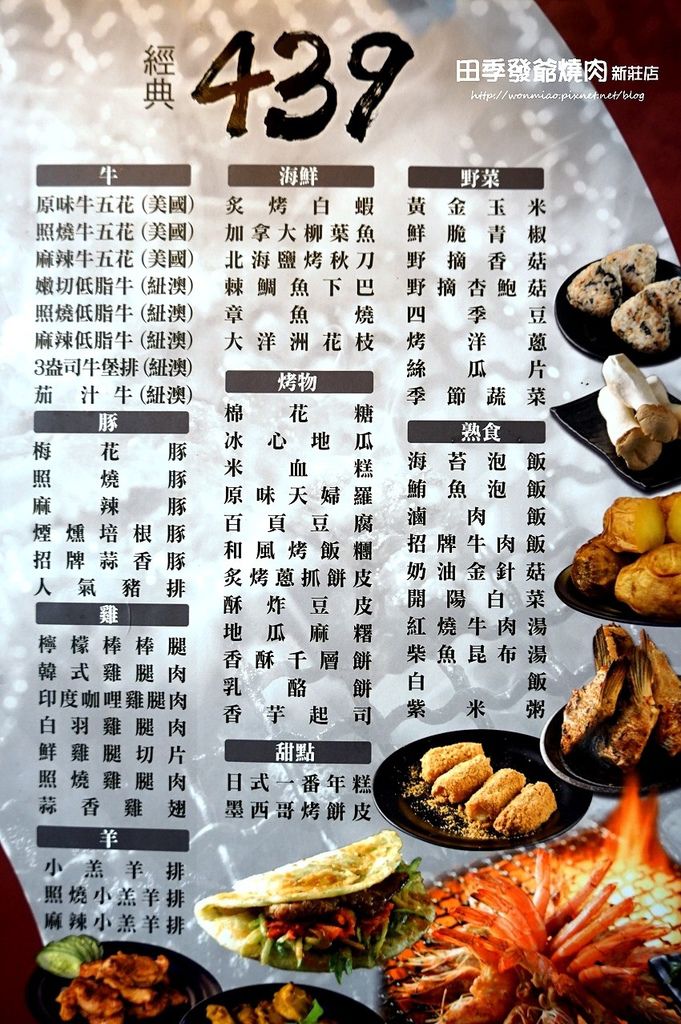 經典
439
田季發爺燒肉 新莊店
http://wonmiao.pixnet.net/blog
牛
原味牛五花(美國)
照燒牛五花(美國)
麻辣牛五花(美國)
嫩切低脂牛(紐澳)
照燒低脂牛(紐澳)
麻辣低脂牛(紐澳)
3盎司牛堡排(紐澳)
茄汁牛(紐澳)
豚
梅花豚
照燒豚
麻辣豚
煙燻培根豚
招牌蒜香豚
人氣豬排
雞
檸檬棒棒腿
韓式雞腿肉
印度咖哩雞腿肉
白羽雞腿肉
鮮雞腿切片
照燒雞腿肉
蒜香雞翅
羊
小羔羊排
照燒小羔羊排
麻辣小羔羊排
海鮮
炙烤白蝦
加拿大柳葉魚
北海鹽烤秋刀
棘鯛魚下巴
章魚燒
大洋洲花枝
烤物
棉花糖
冰心地瓜
米血糕
原味天婦羅
百頁豆腐
和風烤飯糰
炙烤蔥抓餅皮
酥炸豆皮
地瓜麻糬
香酥千層餅
乳酪餅
香芋起司
甜點
日式一番年糕
墨西哥烤餅皮
野菜
黃金玉米
鮮脆青椒
野摘香菇
野摘杏鮑菇
四季豆
烤洋蔥
絲瓜片
季節蔬菜
熟食
海苔泡飯
鮪魚泡飯
滷肉飯
招牌牛肉飯
奶油金針菇
開陽白菜
紅燒牛肉湯
柴魚昆布湯
白飯
紫米粥